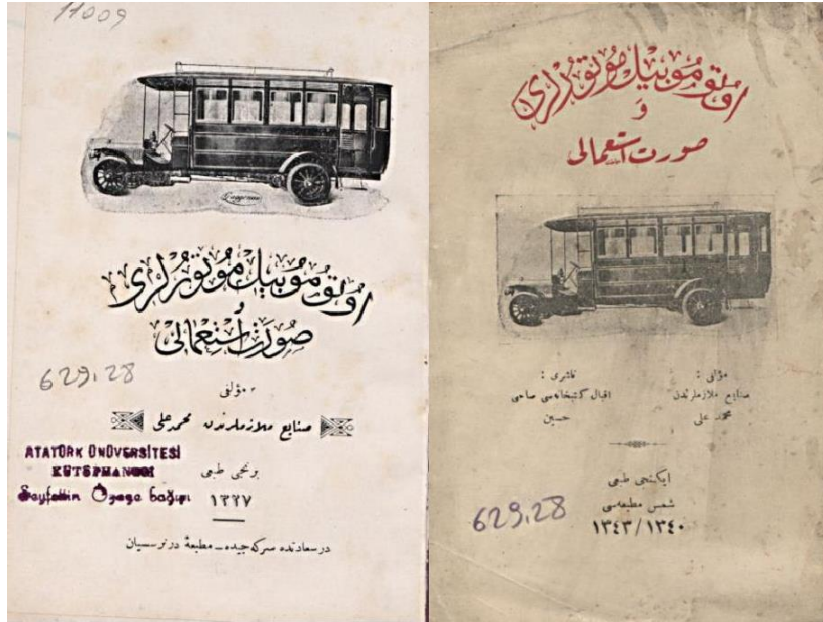 11009
اوتوموبيل موتورلرى
و
صورت استعمالى
629.28
مؤلفى
صنايع ملازملرندن محمد على
ATATÜRK ÜNİVERSİTESİ
KÜTÜPHANESİ
Seyfettin Özege bağışı
برنجى طبعى
١٣٢٧
در سعادتده سركه جيده – مطبعۀ در نرسسيان
اوتوموبيل موتورلرى
و
صورت استعمالى
مؤلفى :
صنايع ملازملرندن
محمد على
ناشرى :
اقبال كتبخانه سى صاحبى
حسين
ايكنجى طبعى
شمس مطبعه سى
١٣٤٣/١٣٤٠
629.28